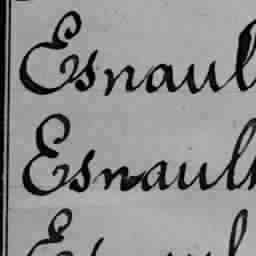 Esnaul
Esnaul